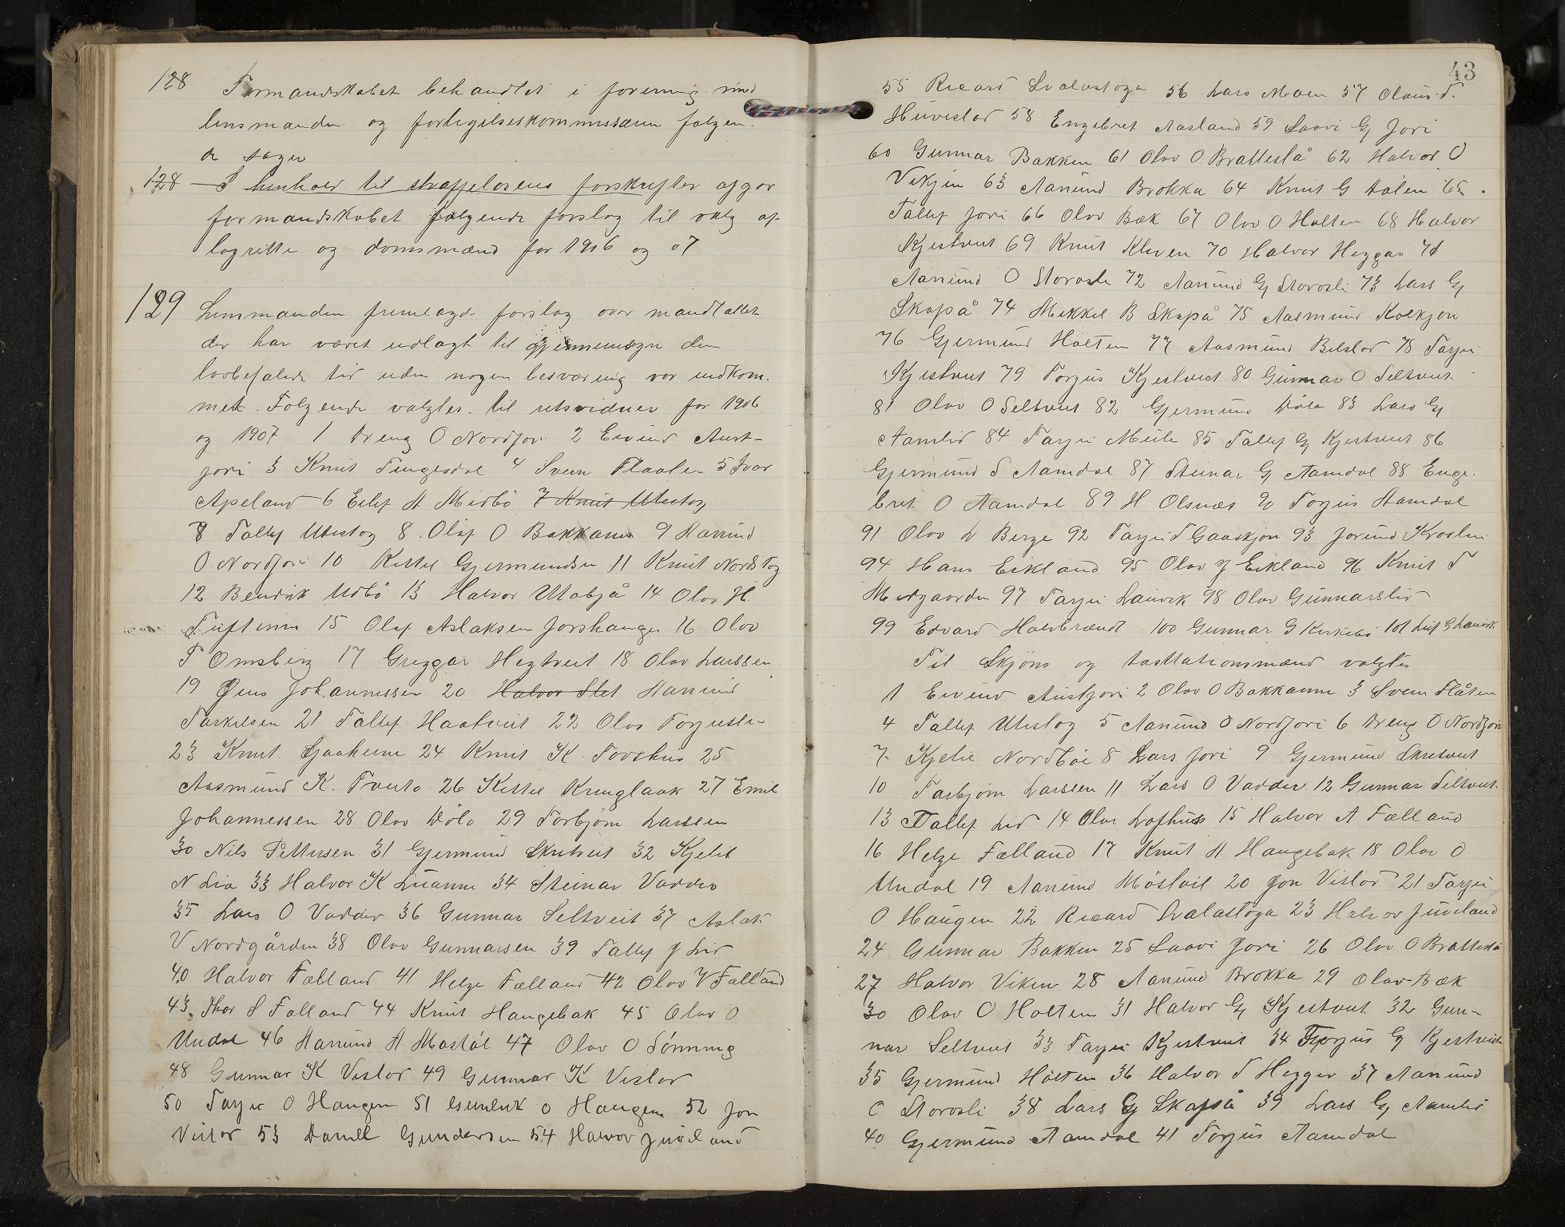 128 Formandskabet behandlet i forening med
lensmanden og forligelseskommissæren følgen-
de sager
128 I henhold til straffelovens forskrifter afgav
formandskabet følgende forslag til valg af
lagrette og domsmænd for 1906 og 07
129 Lensmanden fremlagde forslag over mandtallet
der har været udlagt til gjennemsyn den
lovbefalede tid uden nogen besværing var indkom-
met. Følgende valgtes til retsvidner for 1906
og 1907 1 Dreng O Nordjori 2 Eivind Aust-
jori 3 Knut Tingesdal 4 Svein Flaaten 5 Ivar
Apeland 6 Eilef A Midbø 7 Knut Utistog
8 Tallef Utistog 8 Olaf O Bakkane 9 Aanund
O Nordjori 10 Kittil Gjermundsen 11 Knut Nordstog
12 Bendik Udbø 13 Halvor Utabjå 14 Olav H
Tuftene 15 Olaf Aslaksen Jorshauge 16 Olav
T Omsberg 17 Greggar Hegtveit 18 Olav Larssen
19 Jens Johannessen 20 Halvor Slet Aanund
Tarkelsen 21 Tallef Haatveit 22 Olav Torjusli
23 Knut Gaaheim 24 Knut K. Tovshus 25
Aasmund K. Tveito 26 Kittil Kringlaak 27 Emil
Johannessen 28 Olav Døle 29 Torbjørn Larssen
30 Nils Pettersen 31 Gjermund Skretveit 32 Kjetil
N Lia 33 Halvor K Luanne 34 Steinar Vadder
35 Lars O Vadder 36 Gunnar Seltveit 37 Aslak
V Nordgården 38 Olav Gunnarsen 39 Tallef J Lid
40 Halvor Fælland 41 Helge Fælland 42 Olav V Fælland
43 Thor S Fælland 44 Knut Haugebak 45 Olav O
Undal 46 Aanund A Mostøl 47 Olav O Lønning
48 Gunnar K Vislor 49 Gunnar K Vislor
50 Tarjei O Haugen 51 Gunleik O Haugen 52 Jon
Vislor 53 Daniel Gundersen 54 Halvor Juveland
43
55 Ricard Dalastoga 56 Lars Moen 57 Olaus T
Huveslod 58 Engebret Aasland 59 Saavi G Jori
60 Gunnar Bakken 61 Olav O Bratteslå 62 Halvor O
Vikjen 63 Aanund Brokka 64 Knut G Dalen 65
Tallef Jori 66 Olav Bæk 67 Olav O Holten 68 Halvor
Kjestveit 69 Knut Kleven 70 Halvor Heggar 71
Aanund O Storosli 72 Aanund G Storosli 73 Lars G
Skafså 74 Mikkel B Skafså 75 Aasmund Kolkjon
76 Gjermund Holten 77 Aasmund Bilslod 78 Tarjei
Kjestveit 79 Torjus Kjestveit 80 Gunnar O Seltveit
81 Olav O Seltveit 82 Gjermund Dølo 83 Lars G
Aamlid 84 Tarjei Meile 85 Tallef G Kjestveit 86
Gjermund S Aamdal 87 Steinar G Aamdal 88 Enge-
bret O Aamdal 89 H Olsnæs 90 Torjus Aamdal
91 Olav L Berge 92 Tarjei T Gaaskjon 93 Jorund Krosli
94 Hans Eikland 95 Olav J Eikland 96 Knut T
Midgaarden 97 Tarjei Lauvik 98 Olav Gunnarslid
99 Edvard Halvbrændt 100 Gunnar G Kirkebø 101 Leif G Lauvik
Til Skjøns og taxtationsmænd valgtes
1 Eivind Austjori 2 Olav O Bakkanne 3 Svein Flåten
4 Tallef Utistog 5 Aanund O Nordjori 6 Dreng O Nordjori
7 Kjetil Nordbøe 8 Lars Jori 9 Gjermund Skretveit
10 Tarbjørn Larssen 11 Lars O Vadder 12 Gunnar Seltveit
13 Tallef Lid 14 Olav Lofthus 15 Halvor A Fælland
16 Helge Fælland 17 Knut A Haugebak 18 Olav O
Undal 19 Aanund Møstøil 20 Jon Vislod 21 Tarjei
O Haugen 22 Ricard Dalastoga 23 Halvor Juveland
24 Gunnar Bakken 25 Saavi Jori 26 Olav O Bratteslå
27 Halvor Viken 28 Aanund Brokka 29 Olav Bæk
30 Olav O Holten 31 Halvor G Kjestveit 32 Gun-
nar Seltveit 33 Tarjei Kjestveit 34 Torjus G Kjestveit
35 Gjermund Holten 36 Halvor T Hegger 37 Aanund
O Storosli 38 Lars G Skafså 39 Lars G Aamlid
40 Gjermund Aamdal 41 Torjus Aamdal